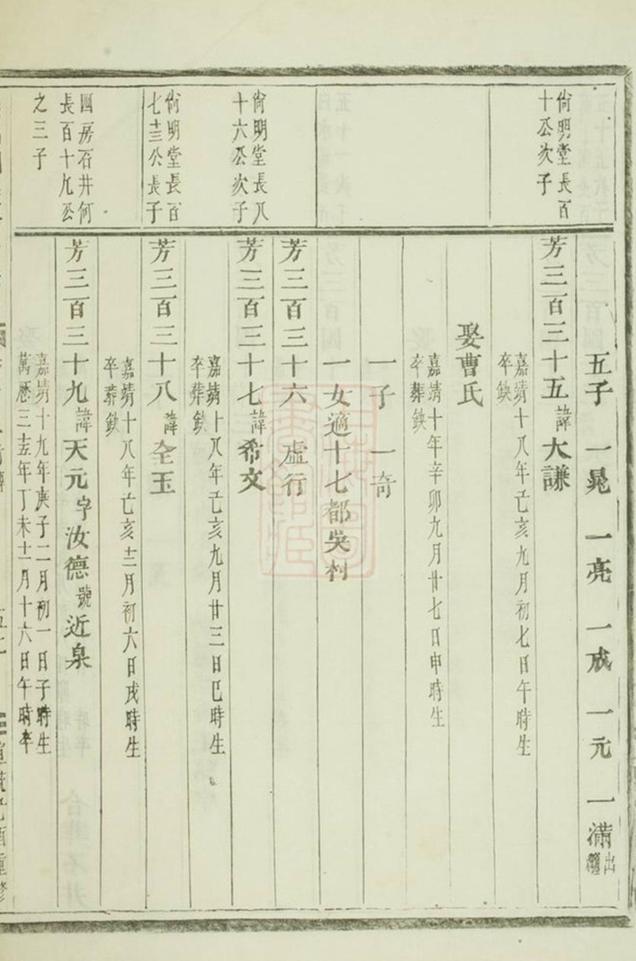 五子 一晃 一亮 一成 一元 一滿 出繼
尙明堂長百
十公次子
芳三百三十五 諱大謙
嘉靖十八年亡亥九月初七日午時生
卒葬缺
娶曹氏
嘉靖十年辛卯九月廿七日申時生
卒葬缺
一子 一奇
一女適十七都吳村
芳三百三十六 虛行
尙明堂長八
十六公次子
芳三百三十七 諱希文
嘉靖十八年亡亥九月廿三日巳時生
卒葬缺
尙明堂長百
七十三公長子
芳三百三十八 諱全玉
嘉靖十八年亡亥十二月初六日戌時生
卒葬缺
四房石井何
長百十九公
之三子
芳三百三十九 諱天元字汝德號近泉
嘉靖十九年庚子二月初一日子時生
萬歷三十五年丁未十一月十六日午時卒